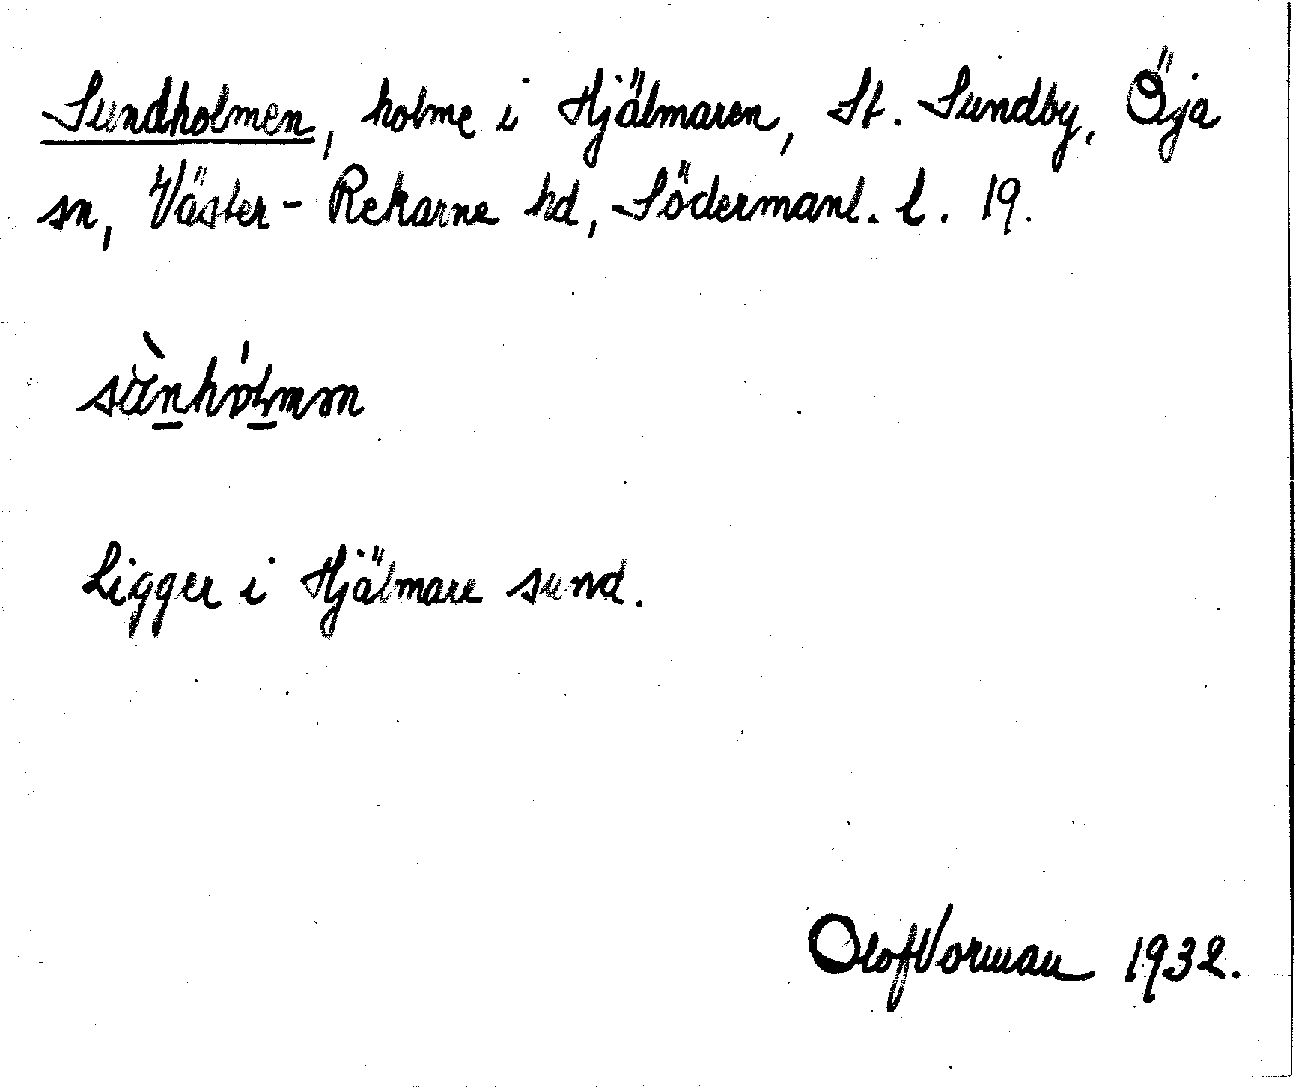 Sundholmen, holme i Hjälmaren, St. Sundby, Öja
sn, Väster-Rekarne hd, Södermanl. l. 19.
Ligger i Hjälmare sund.
Olof Vorman 1932.